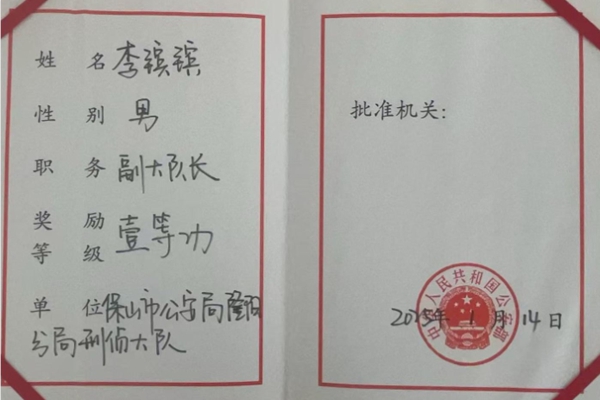 姓 名 李瑸瑸
性 别 男
职 务 副大队长
奖 励
等 级 壹等功
单 位 保山市公安局隆阳
分局刑侦大队
批准机关：
中华人民共和国公安部
2025年 1 月 14 日